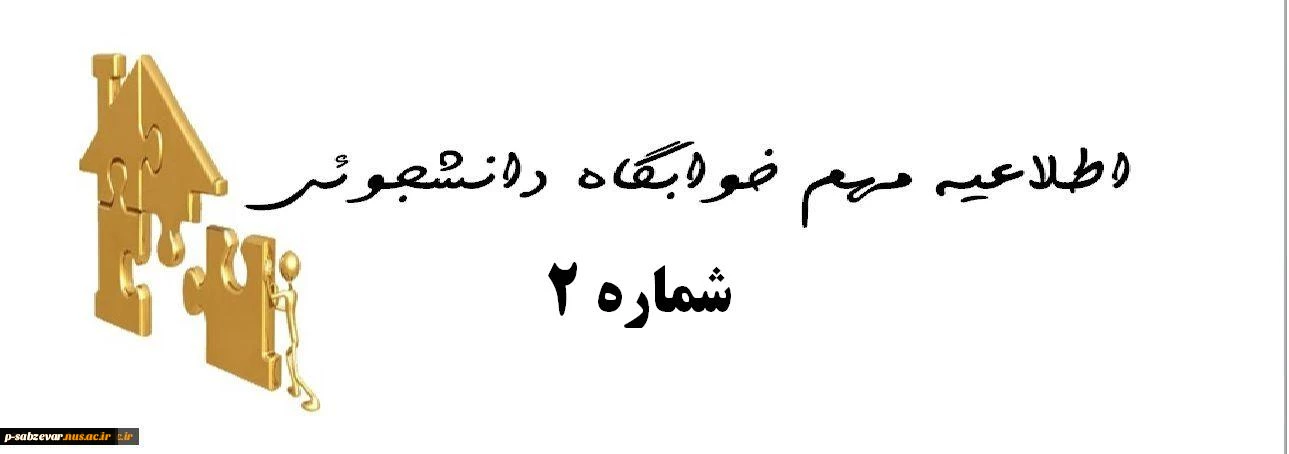 اطلاعیه مهم خوابگاه دانشجوئی
شماره ۲
p-sabzevar.nus.ac.ir